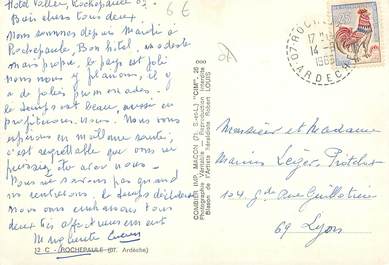 Hotel Vallier, Rochepaule 07.
6 €
Bien chers tous deux
Nous sommes depuis Mardi à
Rochepaule, Bon hôtel, modeste
mais propre, le pays est joli
nous nous y plaisons, il y
a de jolies promenades.
le temps est beau, aussi en
profitons nous. Nous vous
espérons en meilleure santé,
c'est regrettable que vous ne
puissiez être avec nous.
Nous ne savons pas quand
nous rentrerons, le temps décidera
nous vous embrassons tous
deux très affectueusement
Marguerite
12 C - ROCHEPAULE (07. Ardèche)
COMBIER IMP. MACON (S.-et-L.) "CIM"
Photographie Véritable - Reproduction Interdite
Blason de l'Artiste Héraldiste Robert LOUIS
07 ROCHEPAULE
17 H
14 -9
1965
ARDECHE
Monsieur et Madame
Marius Léger
104 gde Rue Guillotière
69 Lyon